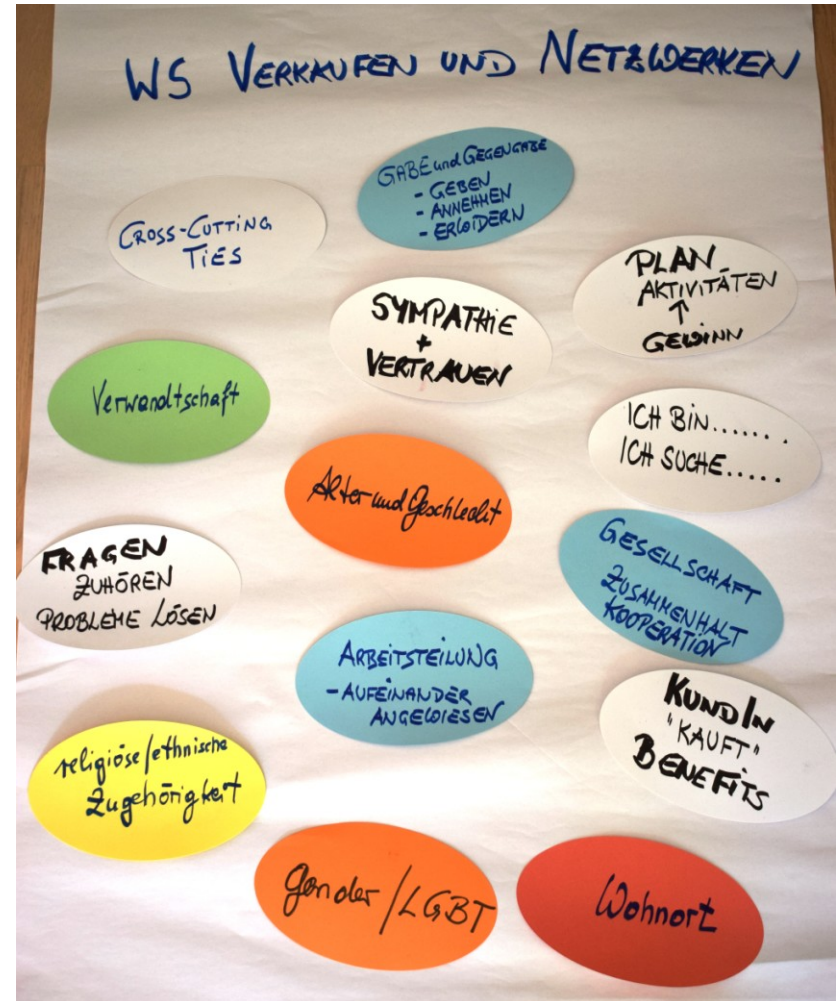 WS VERKAUFEN UND NETZWERKEN
GABE und GEGENGABE
- GEBEN
- ANNEHMEN
- ERWIDERN
CROSS-CUTTING
TIES
PLAN
AKTIVITÄTEN
↑
GEWINN
SYMPATHIE
+
VERTRAUEN
Verwandtschaft
ICH BIN.......
ICH SUCHE.....
Alter und Geschlecht
FRAGEN
ZUHÖREN
PROBLEME LÖSEN
GESELLSCHAFT
ZUSAMMENHALT
KOOPERATION
ARBEITSTEILUNG
- AUFEINANDER
ANGEWIESEN
KUNDIN
"KAUFT"
BENEFITS
religiöse/ethnische
Zugehörigkeit
Gender/LGBT
Wohnort